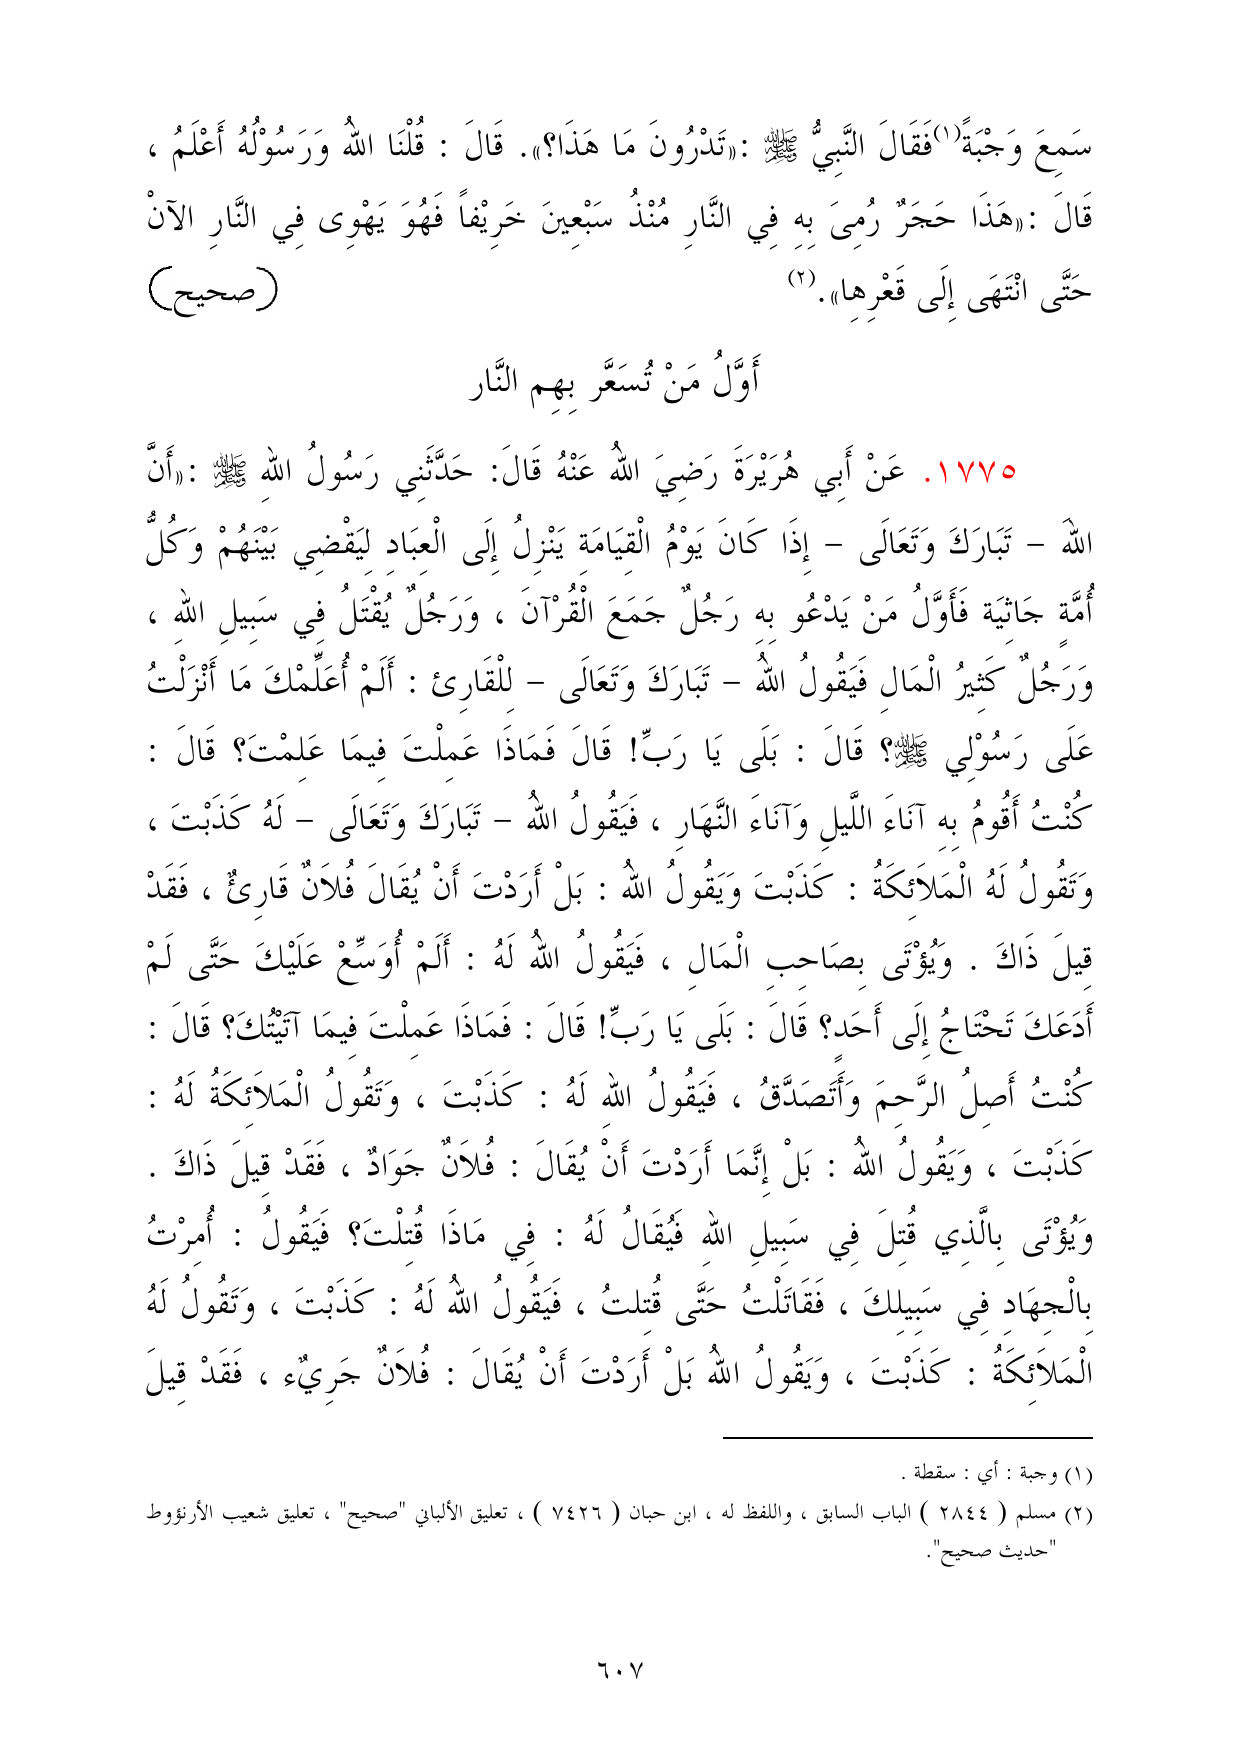 سَمِعَ وَجْبَةً(١)فَقَالَ النَّبِيُّ ﷺ :«تَدْرُونَ مَا هَذَا؟». قَالَ : قُلْنَا اللهُ وَرَسُوْلُهُ أَعْلَمُ ،
قَالَ :«هَذَا حَجَرٌ رُمِىَ بِهِ فِي النَّارِ مُنْذُ سَبْعِينَ خَرِيْفاً فَهُوَ يَهْوِى فِي النَّارِ الآنْ
حَتَّى انْتَهَى إِلَى قَعْرِهِا».(٢) (صحيح)
أَوَّلُ مَنْ تُسَعَّر بِهِم النَّار
١٧٧٥. عَنْ أَبِي هُرَيْرَةَ رَضِيَ اللهُ عَنْهُ قَالَ: حَدَّثَنِي رَسُولُ اللهِ ﷺ :«أَنَّ
اللهَ – تَبَارَكَ وَتَعَالَى – إِذَا كَانَ يَوْمُ الْقِيَامَةِ يَنْزِلُ إِلَى الْعِبَادِ لِيَقْضِي بَيْنَهُمْ وَكُلُّ
أُمَّةٍ جَاثِيَة فَأَوَّلُ مَنْ يَدْعُو بِهِ رَجُلٌ جَمَعَ الْقُرْآنَ ، وَرَجُلٌ يُقْتَلُ فِي سَبِيلِ اللهِ ،
وَرَجُلٌ كَثِيرُ الْمَالِ فَيَقُولُ اللهُ – تَبَارَكَ وَتَعَالَى – لِلْقَارِئ : أَلَمْ أُعَلِّمْكَ مَا أَنْزَلْتُ
عَلَى رَسُوْلِي ﷺ؟ قَالَ : بَلَى يَا رَبِّ! قَالَ فَمَاذَا عَمِلْتَ فِيمَا عَلِمْتَ؟ قَالَ :
كُنْتُ أَقُومُ بِهِ آنَاءَ اللَّيلِ وَآنَاءَ النَّهَارِ ، فَيَقُولُ اللهُ – تَبَارَكَ وَتَعَالَى – لَهُ كَذَبْتَ ،
وَتَقُولُ لَهُ الْمَلاَئِكَةُ : كَذَبْتَ وَيَقُولُ اللهُ : بَلْ أَرَدْتَ أَنْ يُقَالَ فُلاَنٌ قَارِئٌ ، فَقَدْ
قِيلَ ذَاكَ . وَيُؤْتَى بِصَاحِبِ الْمَالِ ، فَيَقُولُ اللهُ لَهُ : أَلَمْ أُوَسِّعْ عَلَيْكَ حَتَّى لَمْ
أَدَعَكَ تَحْتَاجُ إِلَى أَحَدٍ؟ قَالَ : بَلَى يَا رَبِّ! قَالَ : فَمَاذَا عَمِلْتَ فِيمَا آتَيْتُكَ؟ قَالَ :
كُنْتُ أَصِلُ الرَّحِمَ وَأَتَصَدَّقُ ، فَيَقُولُ اللهِ لَهُ : كَذَبْتَ ، وَتَقُولُ الْمَلاَئِكَةُ لَهُ :
كَذَبْتَ ، وَيَقُولُ اللهُ : بَلْ إِنَّمَا أَرَدْتَ أَنْ يُقَالَ : فُلاَنٌ جَوَادٌ ، فَقَدْ قِيلَ ذَاكَ .
وَيُؤْتَى بِالَّذِي قُتِلَ فِي سَبِيلِ اللهِ فَيُقَالُ لَهُ : فِي مَاذَا قُتِلْتَ؟ فَيَقُولُ : أُمِرْتُ
بِالْجِهَادِ فِي سَبِيلِكَ ، فَقَاتَلْتُ حَتَّى قُتِلتُ ، فَيَقُولُ اللهُ لَهُ : كَذَبْتَ ، وَتَقُولُ لَهُ
الْمَلاَئِكَةُ : كَذَبْتَ ، وَيَقُولُ اللهُ بَلْ أَرَدْتَ أَنْ يُقَالَ : فُلاَنٌ جَرِيٌء ، فَقَدْ قِيلَ
(١) وجبة : أي : سقطة .
(٢) مسلم ( ٢٨٤٤ ) الباب السابق ، واللفظ له ، ابن حبان ( ٧٤٢٦ ) ، تعليق الألباني "صحيح" ، تعليق شعيب الأرنؤوط
"حديث صحيح".
٦٠٧